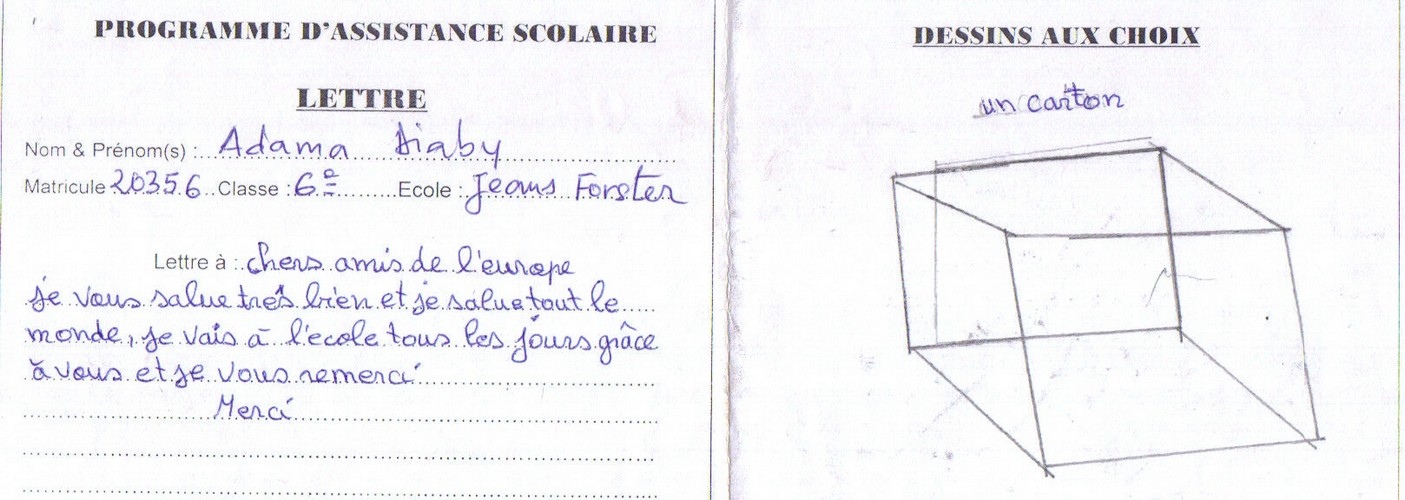 PROGRAMME D'ASSISTANCE SCOLAIRE
LETTRE
Nom & Prénom(s) : Adama Diaby
Matricule 20356 Classe : 6e Ecole : Jeans Forster
Lettre à : chers amis de l'europe
je vous salue très bien et je salue tout le
monde, je vais à l'ecole tous les jours grâce
à vous et je vous remerci
Merci
DESSINS AUX CHOIX
un carton